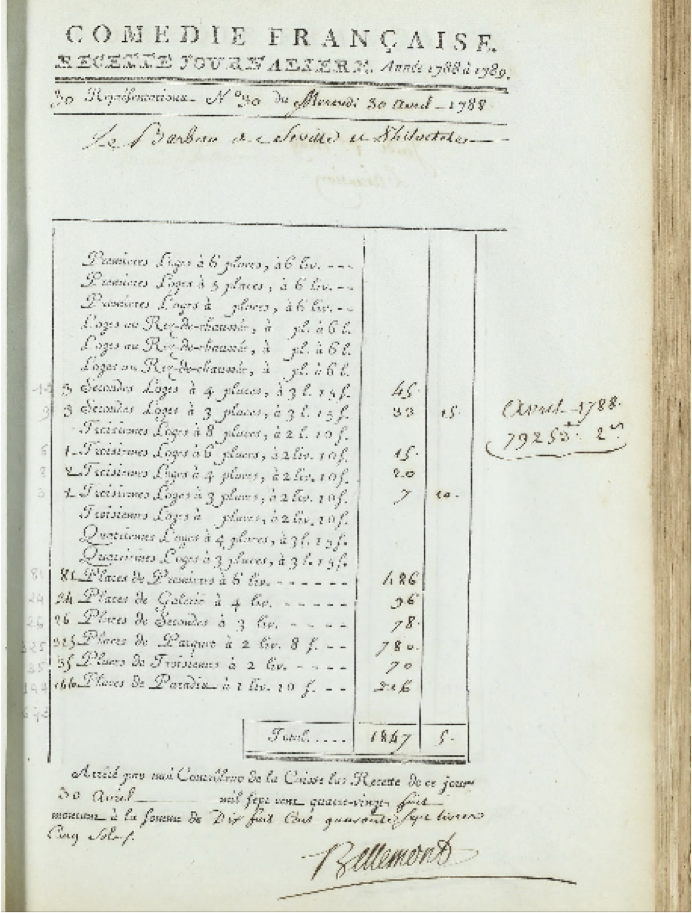 COMEDIE FRANÇAISE.
RECETTE JOURNALIERE. Année 1788 à 1789.
30 Représentations. N° 30 du Mercredi 30 avril - 1788
Le Barbier de Seville et Philoctete
Premieres Loges à 6 places, à 6 liv. - - -
Premieres Loges à 5 places, à 6 liv. - - -
Premieres Loges à places, à 6 liv. - - -
Loges au Rez-de-chaussée, à pl. à 6 l.
Loges au Rez-de-chaussée, à pl. à 6 l.
Loges au Rez-de-chaussée, à pl. à 6 l.
3 Secondes Loges à 4 places, à 3 l. 15 s. 45
3 Secondes Loges à 3 places, à 3 l. 15 s. 33 15
Troisiemes Loges à 8 places, à 2 l. 10 s.
1 Troisiemes Loges à 6 places, à 2 liv. 10 s. 15
2 Troisiemes Loges à 4 places, à 2 liv. 10 s. 20
1 Troisiemes Loges à 3 places, à 2 liv. 10 s. 7 10
Troisiemes Loges à places, à 2 liv. 10 s.
Quatriemes Loges à 4 places, à 3 l. 15 s.
Quatriemes Loges à 3 places, à 3 l. 15 s.
81 Places de Premieres à 6 liv. - - - - - - 486
24 Places de Galerie à 4 liv. - - - - - - 96
26 Places de Secondes à 3 liv. - - - - - - 78
325 Places de Parquet à 2 liv. 8 s. - - - 780
35 Places de Troisiemes à 2 liv. - - - - 70
Places de Paradis à 1 liv. 10 s. - - - 216
Total..... 1847 5
Avril - 1788.
79253 2
Arrêté par moi Contrôleur de la Caisse la Recette de ce jour
30 avril mil sept cent quatre-vingt huit
montant à la somme de Dix huit Cent quarante sept livres
Cinq Sols
Bellemont